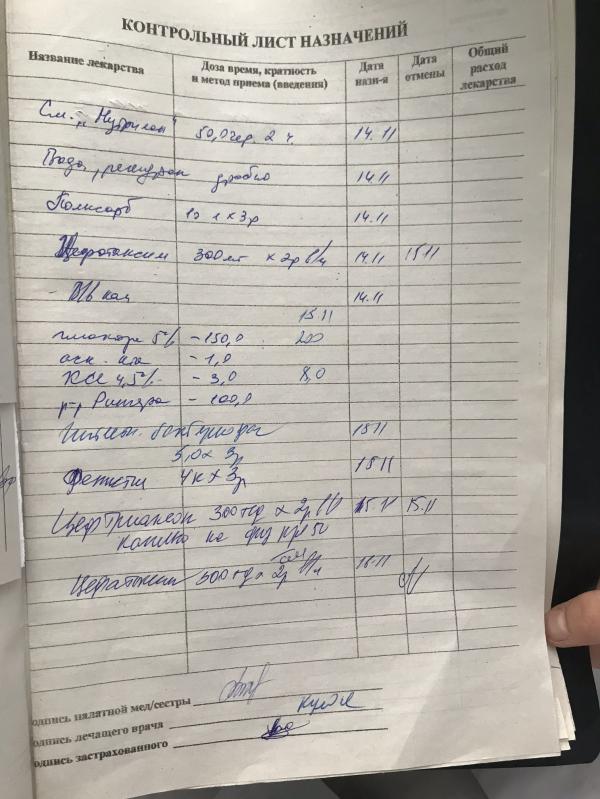 КОНТРОЛЬНЫЙ ЛИСТ НАЗНАЧЕНИЙ
Название лекарства Доза время, кратность и метод приема (введения) Дата назн-я Дата отмены Общий расход лекарства
См. „Нутрилон“ 50,0гр. 2 ч. 14.11
Вода, регидрон дробно 14.11
Полисорб 1 л х 3р 14.11
Цефотаксим 300мг х 2р в/м 14.11 15.11
В/в кап 14.11
15.11
глюкоза 5% - 150,0 200
аск. к-та - 1,0
KCl 4,5% - 3,0 8,0
р-р Рингера - 100,0
бактериофаг 15.11
5,0 х 3р
4к х 3р 15.11
Цефтриаксон 300мг х 2р в/в 15.11 15.11
капельно на физ р-ре 50
Цефотаксим 300мг х 2р в/м 15.11
одпись палатной мед/сестры
одпись лечащего врача
одпись застрахованного